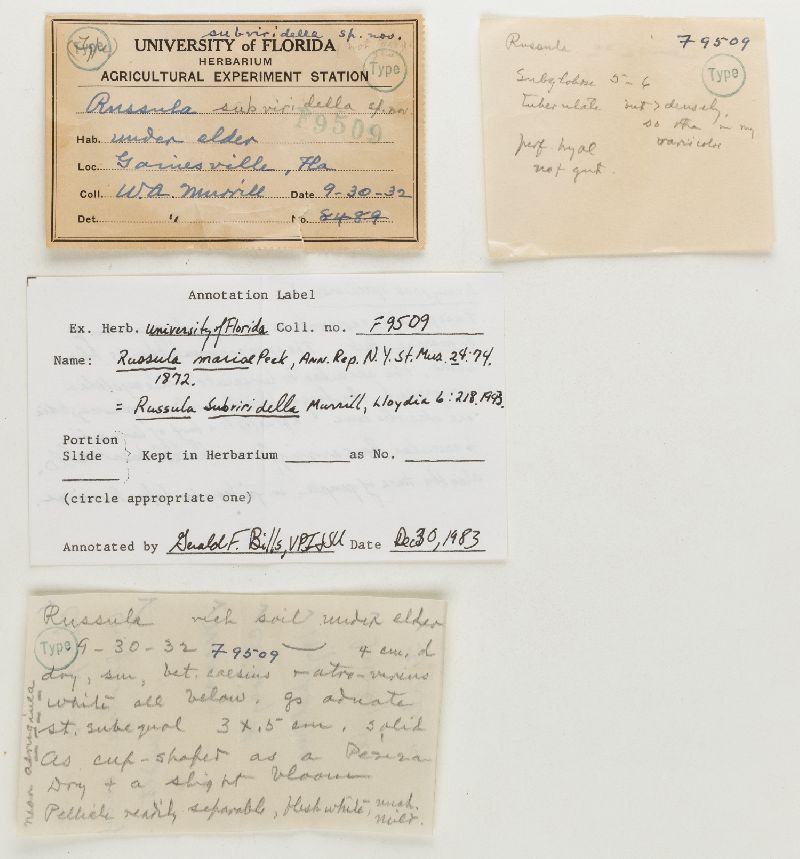 subviridella sp. nov.
Type
UNIVERSITY of FLORIDA
HERBARIUM
Type
AGRICULTURAL EXPERIMENT STATION
Russula subviridella sp. nov
F9509
Hab. under elder
Loc. Gainesville, Fla
Coll. W.A. Murrill Date 9-30-32
Det. " No. 8489
Russula F9509
Type
Subglobose 5-6
tuberculate not densely,
so than in my
variicolor
perf. hyal
not gut.
Annotation Label
Ex. Herb. University of Florida Coll. no. F9509
Name: Russula mariae Peck, Ann. Rep. N.Y. St. Mus. 24:74.
1872.
= Russula Subviridella Murrill, Lloydia 6:218.1943.
Portion
Slide } Kept in Herbarium as No.
(circle appropriate one)
Annotated by Gerald F. Bills, VPI&SU Date Dec 30, 1983
Russula rich soil under elder
Type 9-30-32 F9509 4 cm. d
dry, sm, bet. caesius & atro-virens
white all below. gs adnate
st. subequal 3 x .5 cm, solid
As cup-shaped as a Peziza
Dry & a slight bloom
Pellicle readily separable, flesh white, mush.
mild.
near aeruginea